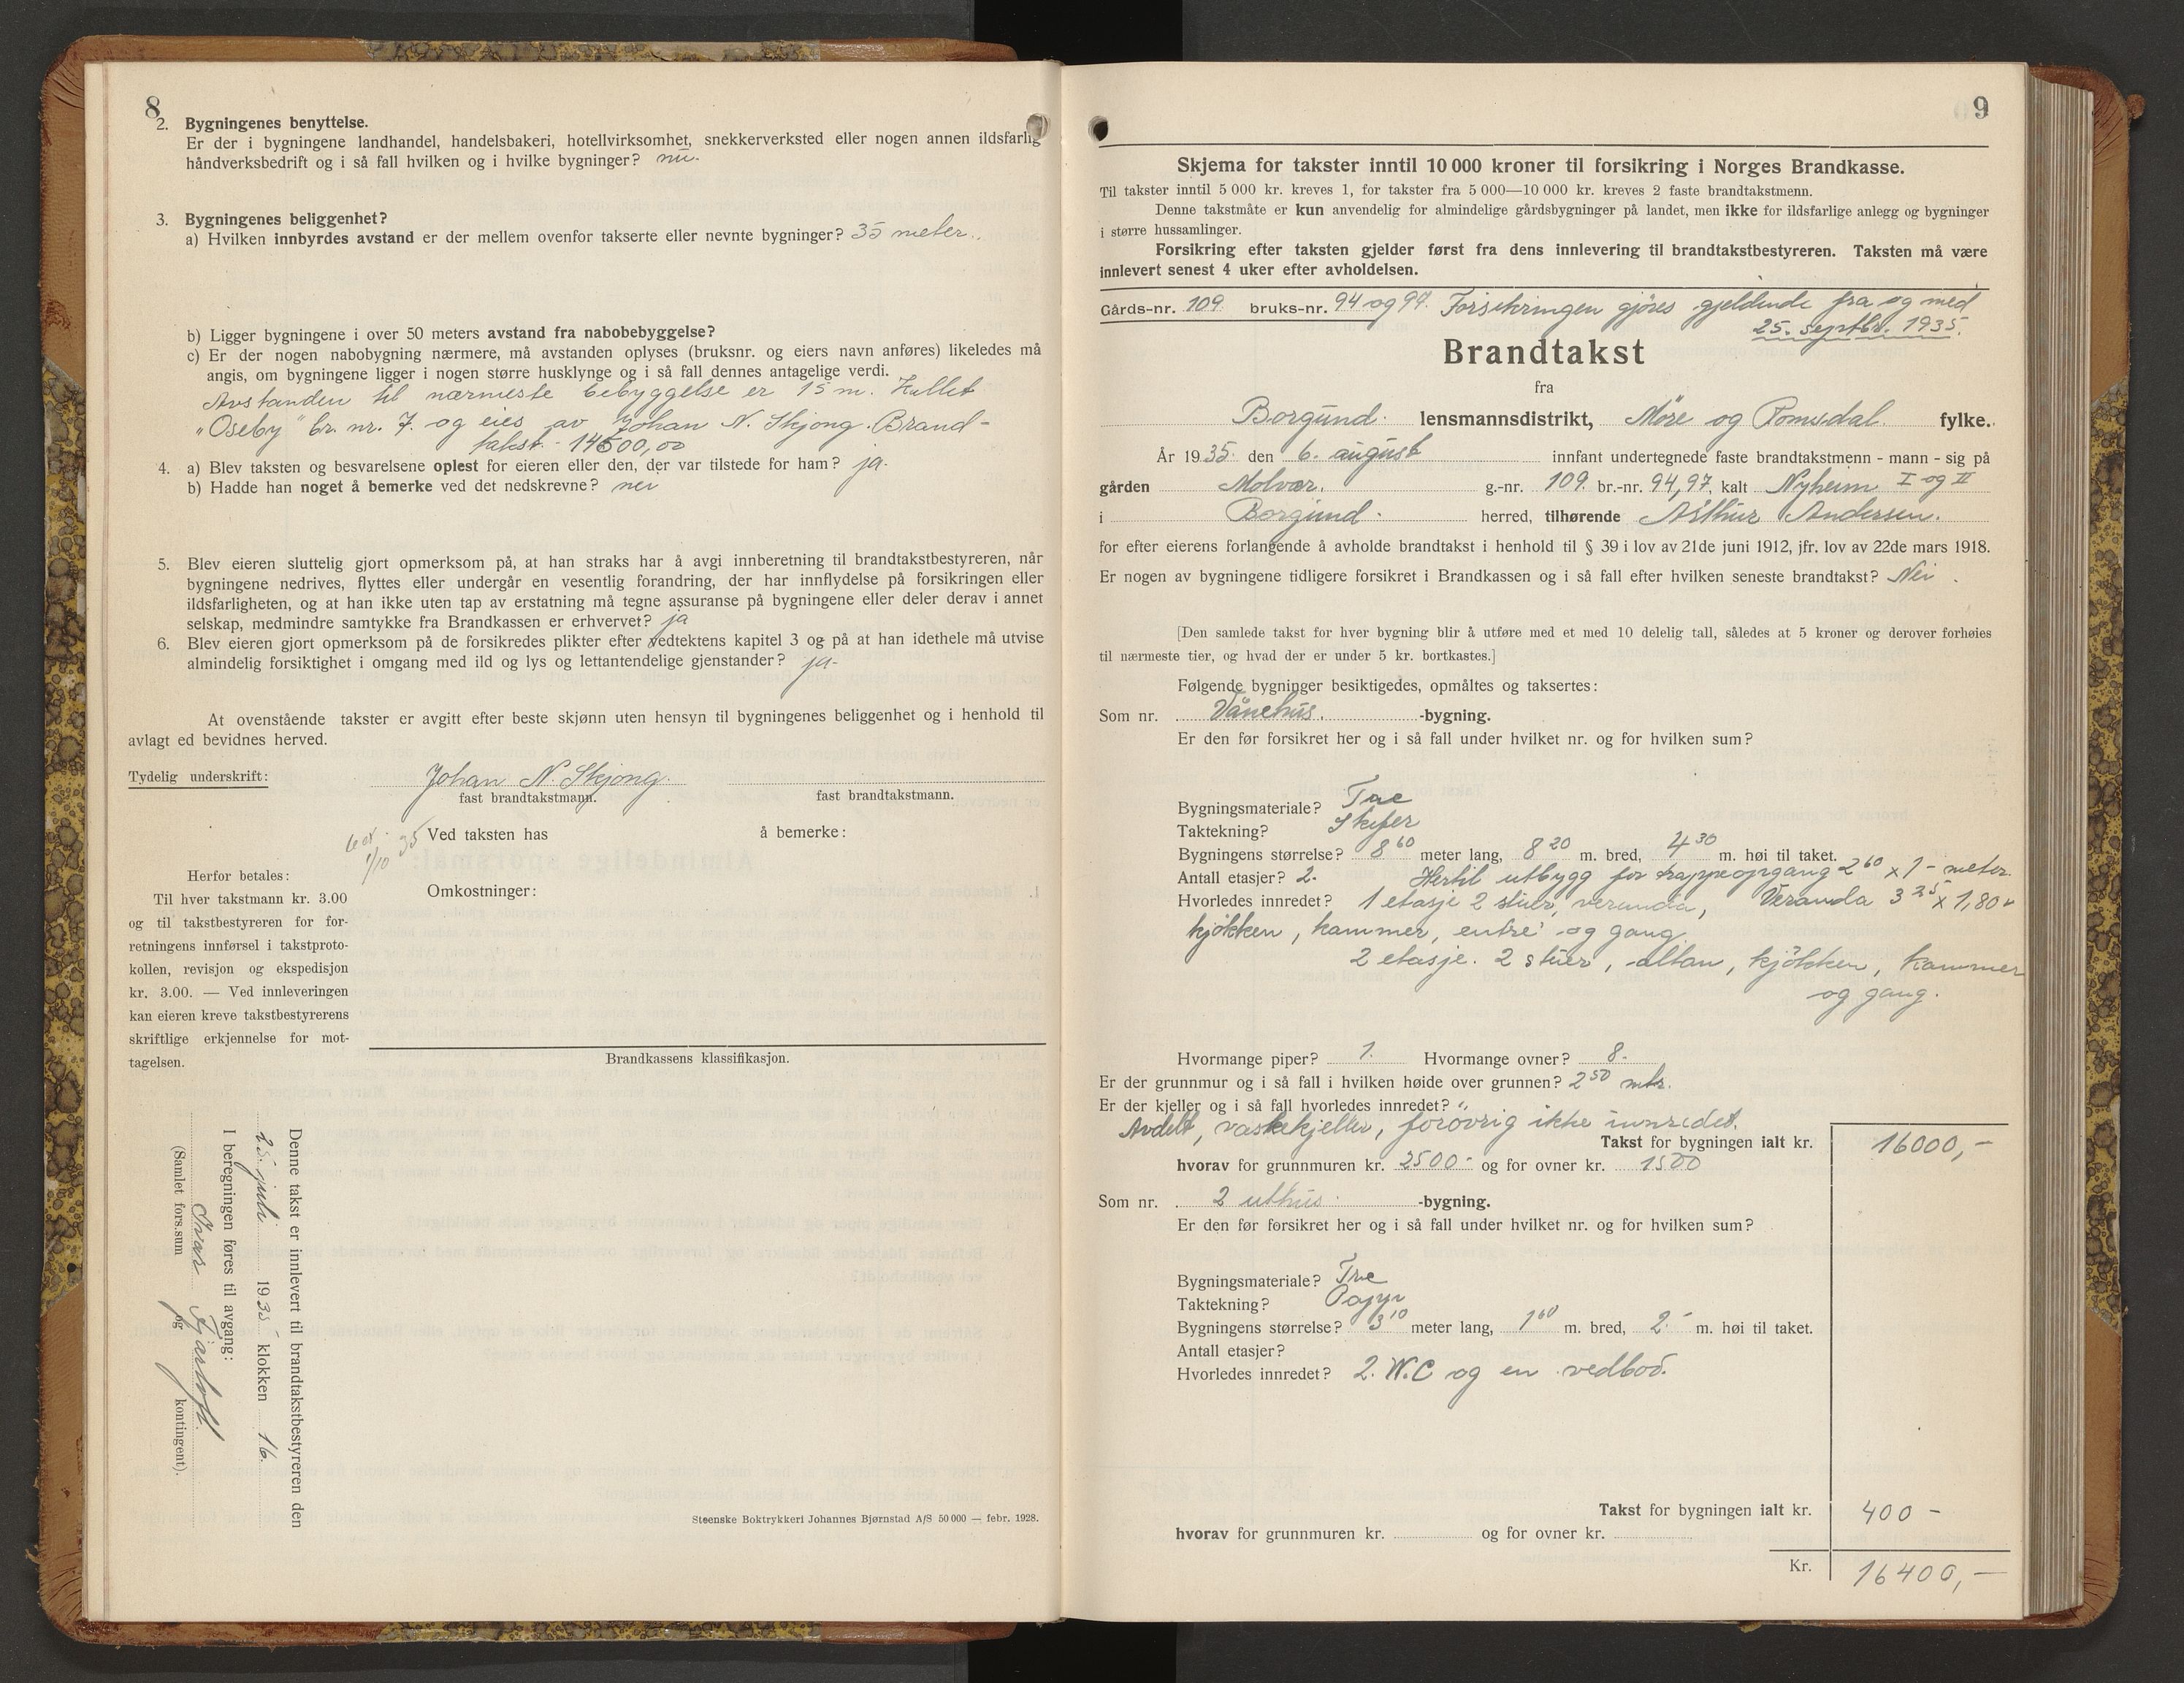 8
2. Bygningenes benyttelse.
Er der i bygningene landhandel, handelsbakeri, hotellvirksomhet, snekkerverksted eller nogen annen ildsfarlig
håndverksbedrift og i så fall hvilken og i hvilke bygninger?
3. Bygningenes beliggenhet?
a) Hvilken innbyrdes avstand er der mellem ovenfor takserte eller nevnte bygninger? 35 meter.
b) Ligger bygningene i over 50 meters avstand fra nabobebyggelse?
c) Er der nogen nabobygning nærmere, må avstanden oplyses (bruksnr. og eiers navn anføres) likeledes må
angis, om bygningene ligger i nogen større husklynge og i så fall dennes antagelige verdi.
Avstanden til nærmeste bebyggelse er 15 m. Kallet
"Oseby" br. nr. 7. og eies av Johan N. Skjong. Brand-
takst - 14500,00
4. a) Blev taksten og besvarelsene oplest for eieren eller den, der var tilstede for ham? ja.
b) Hadde han noget å bemerke ved det nedskrevne? nei
5. Blev eieren sluttelig gjort opmerksom på, at han straks har å avgi innberetning til brandtakstbestyreren, når
bygningene nedrives, flyttes eller undergår en vesentlig forandring, der har innflydelse på forsikringen eller
ildsfarligheten, og at han ikke uten tap av erstatning må tegne assuranse på bygningene eller deler derav i annet
selskap, medmindre samtykke fra Brandkassen er erhvervet? ja
6. Blev eieren gjort opmerksom på de forsikredes plikter efter vedtektens kapitel 3 og på at han idethele må utvise
almindelig forsiktighet i omgang med ild og lys og lettantendelige gjenstander? ja.
At ovenstående takster er avgitt efter beste skjønn uten hensyn til bygningenes beliggenhet og i henhold til
avlagt ed bevidnes herved.
Tydelig underskrift: Johan N. Skjong.
fast brandtakstmann. fast brandtakstmann.
1/10 35 Ved taksten has å bemerke:
Herfor betales:
Omkostninger:
Til hver takstmann kr. 3.00
og til takstbestyreren for for-
retningens innførsel i takstproto-
kollen, revisjon og ekspedisjon
kr. 3.00. — Ved innleveringen
kan eieren kreve takstbestyrerens
skriftlige erkjennelse for mot-
tagelsen.
Brandkassens klassifikasjon.
Denne takst er innlevert til brandtakstbestyreren den
25 juli 1935 klokken 16.
I beregningen føres til avgang:
Ivar
(Samlet fors.sum og kontingent).
Steenske Boktrykkeri Johannes Bjørnstad A/S 50 000 — febr. 1928.
9
Skjema for takster inntil 10 000 kroner til forsikring i Norges Brandkasse.
Til takster inntil 5 000 kr. kreves 1, for takster fra 5 000—10 000 kr. kreves 2 faste brandtakstmenn.
Denne takstmåte er kun anvendelig for almindelige gårdsbygninger på landet, men ikke for ildsfarlige anlegg og bygninger
i større hussamlinger.
Forsikring efter taksten gjelder først fra dens innlevering til brandtakstbestyreren. Taksten må være
innlevert senest 4 uker efter avholdelsen.
Gårds-nr. 109. bruks-nr. 94 og 97. Forsikringen gjøres gjeldende fra og med
25. septbr. 1935.
Brandtakst
fra
Borgund. lensmannsdistrikt, Møre og Romsdal. fylke.
År 1935. den 6. august innfant undertegnede faste brandtakstmenn - mann - sig på
gården Molvær. g.-nr. 109. br.-nr. 94,97, kalt Nyheim I og II
i Borgund. herred, tilhørende Arthur Andersen.
for efter eierens forlangende å avholde brandtakst i henhold til § 39 i lov av 21de juni 1912, jfr. lov av 22de mars 1918.
Er nogen av bygningene tidligere forsikret i Brandkassen og i så fall efter hvilken seneste brandtakst? Nei.
[Den samlede takst for hver bygning blir å utføre med et med 10 delelig tall, således at 5 kroner og derover forhøies
til nærmeste tier, og hvad der er under 5 kr. bortkastes.]
Følgende bygninger besiktigedes, opmåltes og taksertes:
Som nr. Vånehus. -bygning.
Er den før forsikret her og i så fall under hvilket nr. og for hvilken sum?
Bygningsmateriale? Tre
Taktekning? Skifer
Bygningens størrelse? 8 60 meter lang, 8 20 m. bred, 4 30 m. høi til taket.
Antall etasjer? 2. Hertil utbygg for trappeopgang 2 60 x 1 - meter.
Hvorledes innredet? 1 etasje 2 stuer, veranda, Veranda 3 25 x 1,80 "
kjøkken, kammer, entre' og gang.
2 etasje. 2 stuer, altan, kjøkken, kammer
og gang.
Hvormange piper? 1. Hvormange ovner? 8.
Er der grunnmur og i så fall i hvilken høide over grunnen? 2 50 mtr.
Er der kjeller og i så fall hvorledes innredet?
Avdelt, vaskekjeller, forøvrig ikke innredet.
Takst for bygningen ialt kr. 16000,-
hvorav for grunnmuren kr. 2500- og for ovner kr. 1500
Som nr. 2 uthus. -bygning.
Er den før forsikret her og i så fall under hvilket nr. og for hvilken sum?
Bygningsmateriale? Tre
Taktekning? Papp
Bygningens størrelse? 3 10 meter lang, 1 60 m. bred, 2.- m. høi til taket.
Antall etasjer?
Hvorledes innredet? 2. W.C og en vedbod.
Takst for bygningen ialt kr. 400 -
hvorav for grunnmuren kr. og for ovner kr.
Kr. 16400,-